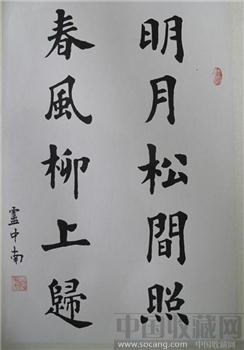 明月松間照
春風柳上歸
盧中南
中国收藏网
www.socang.com 中国收藏网